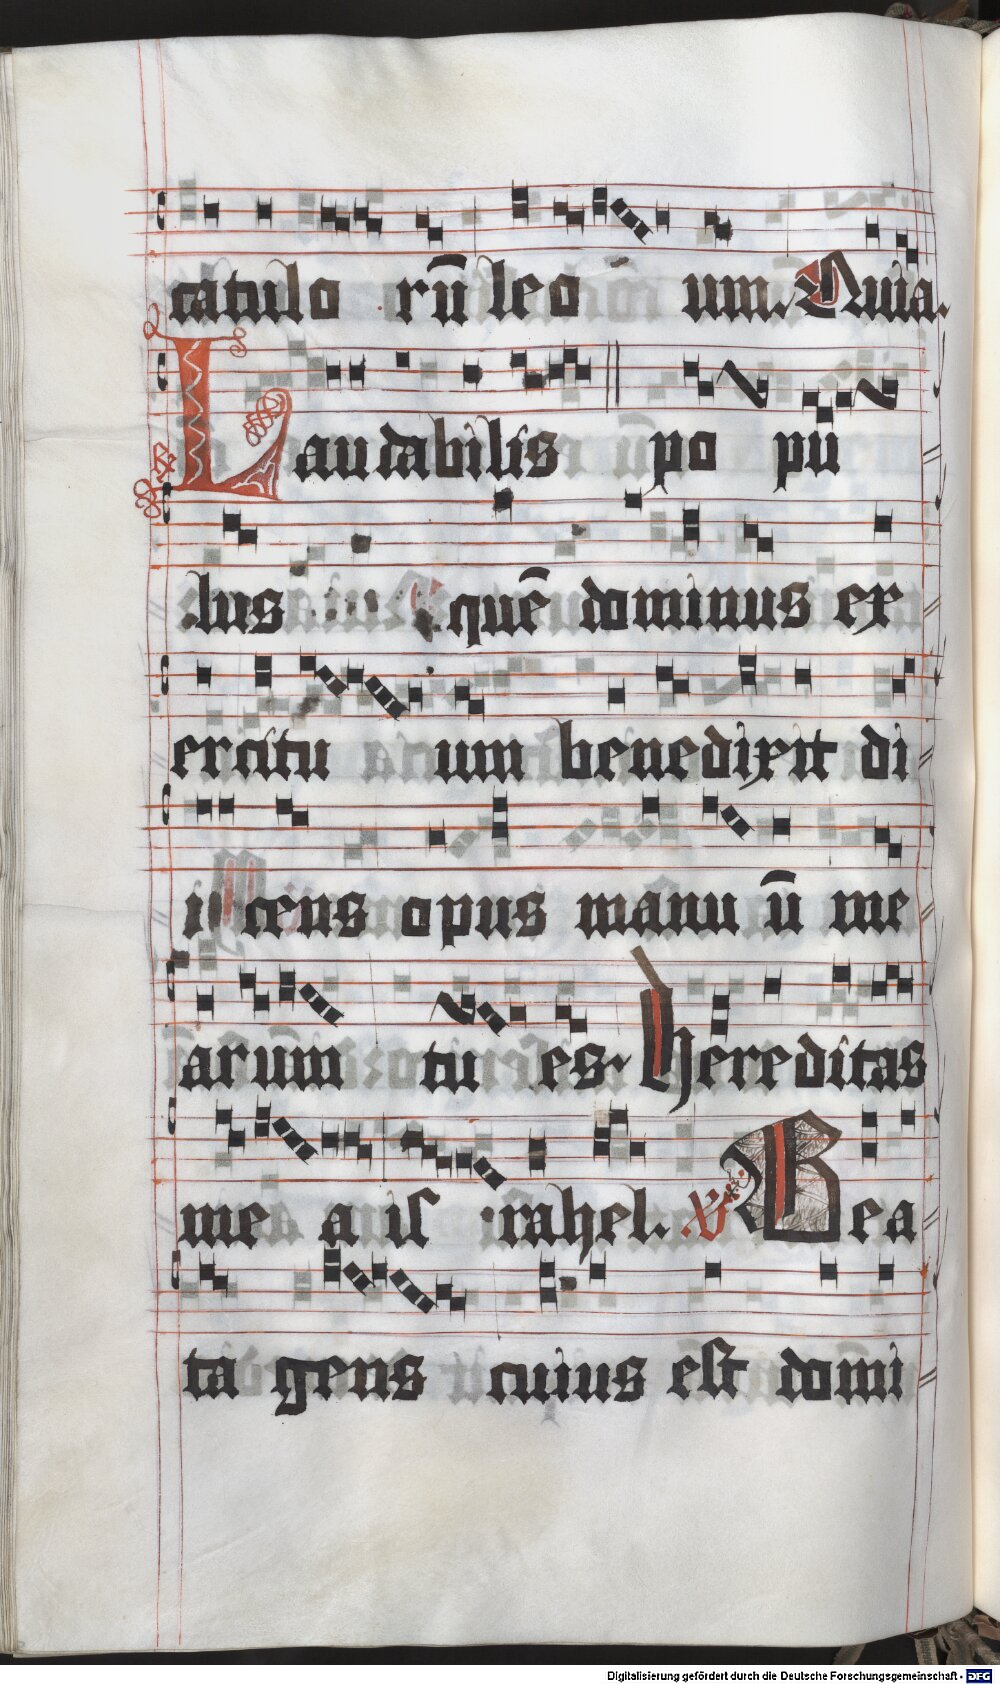 catulo rū leo um. Quia.
Laudabilis po pu
lus quē dominus ex
ercitu a um benedixit di
i cens opus manu ū me
arum tu es. hereditas
me a israhel. V Bea
ta gens cuius est domi
Digitalisierung gefördert durch die Deutsche Forschungsgemeinschaft - DFG